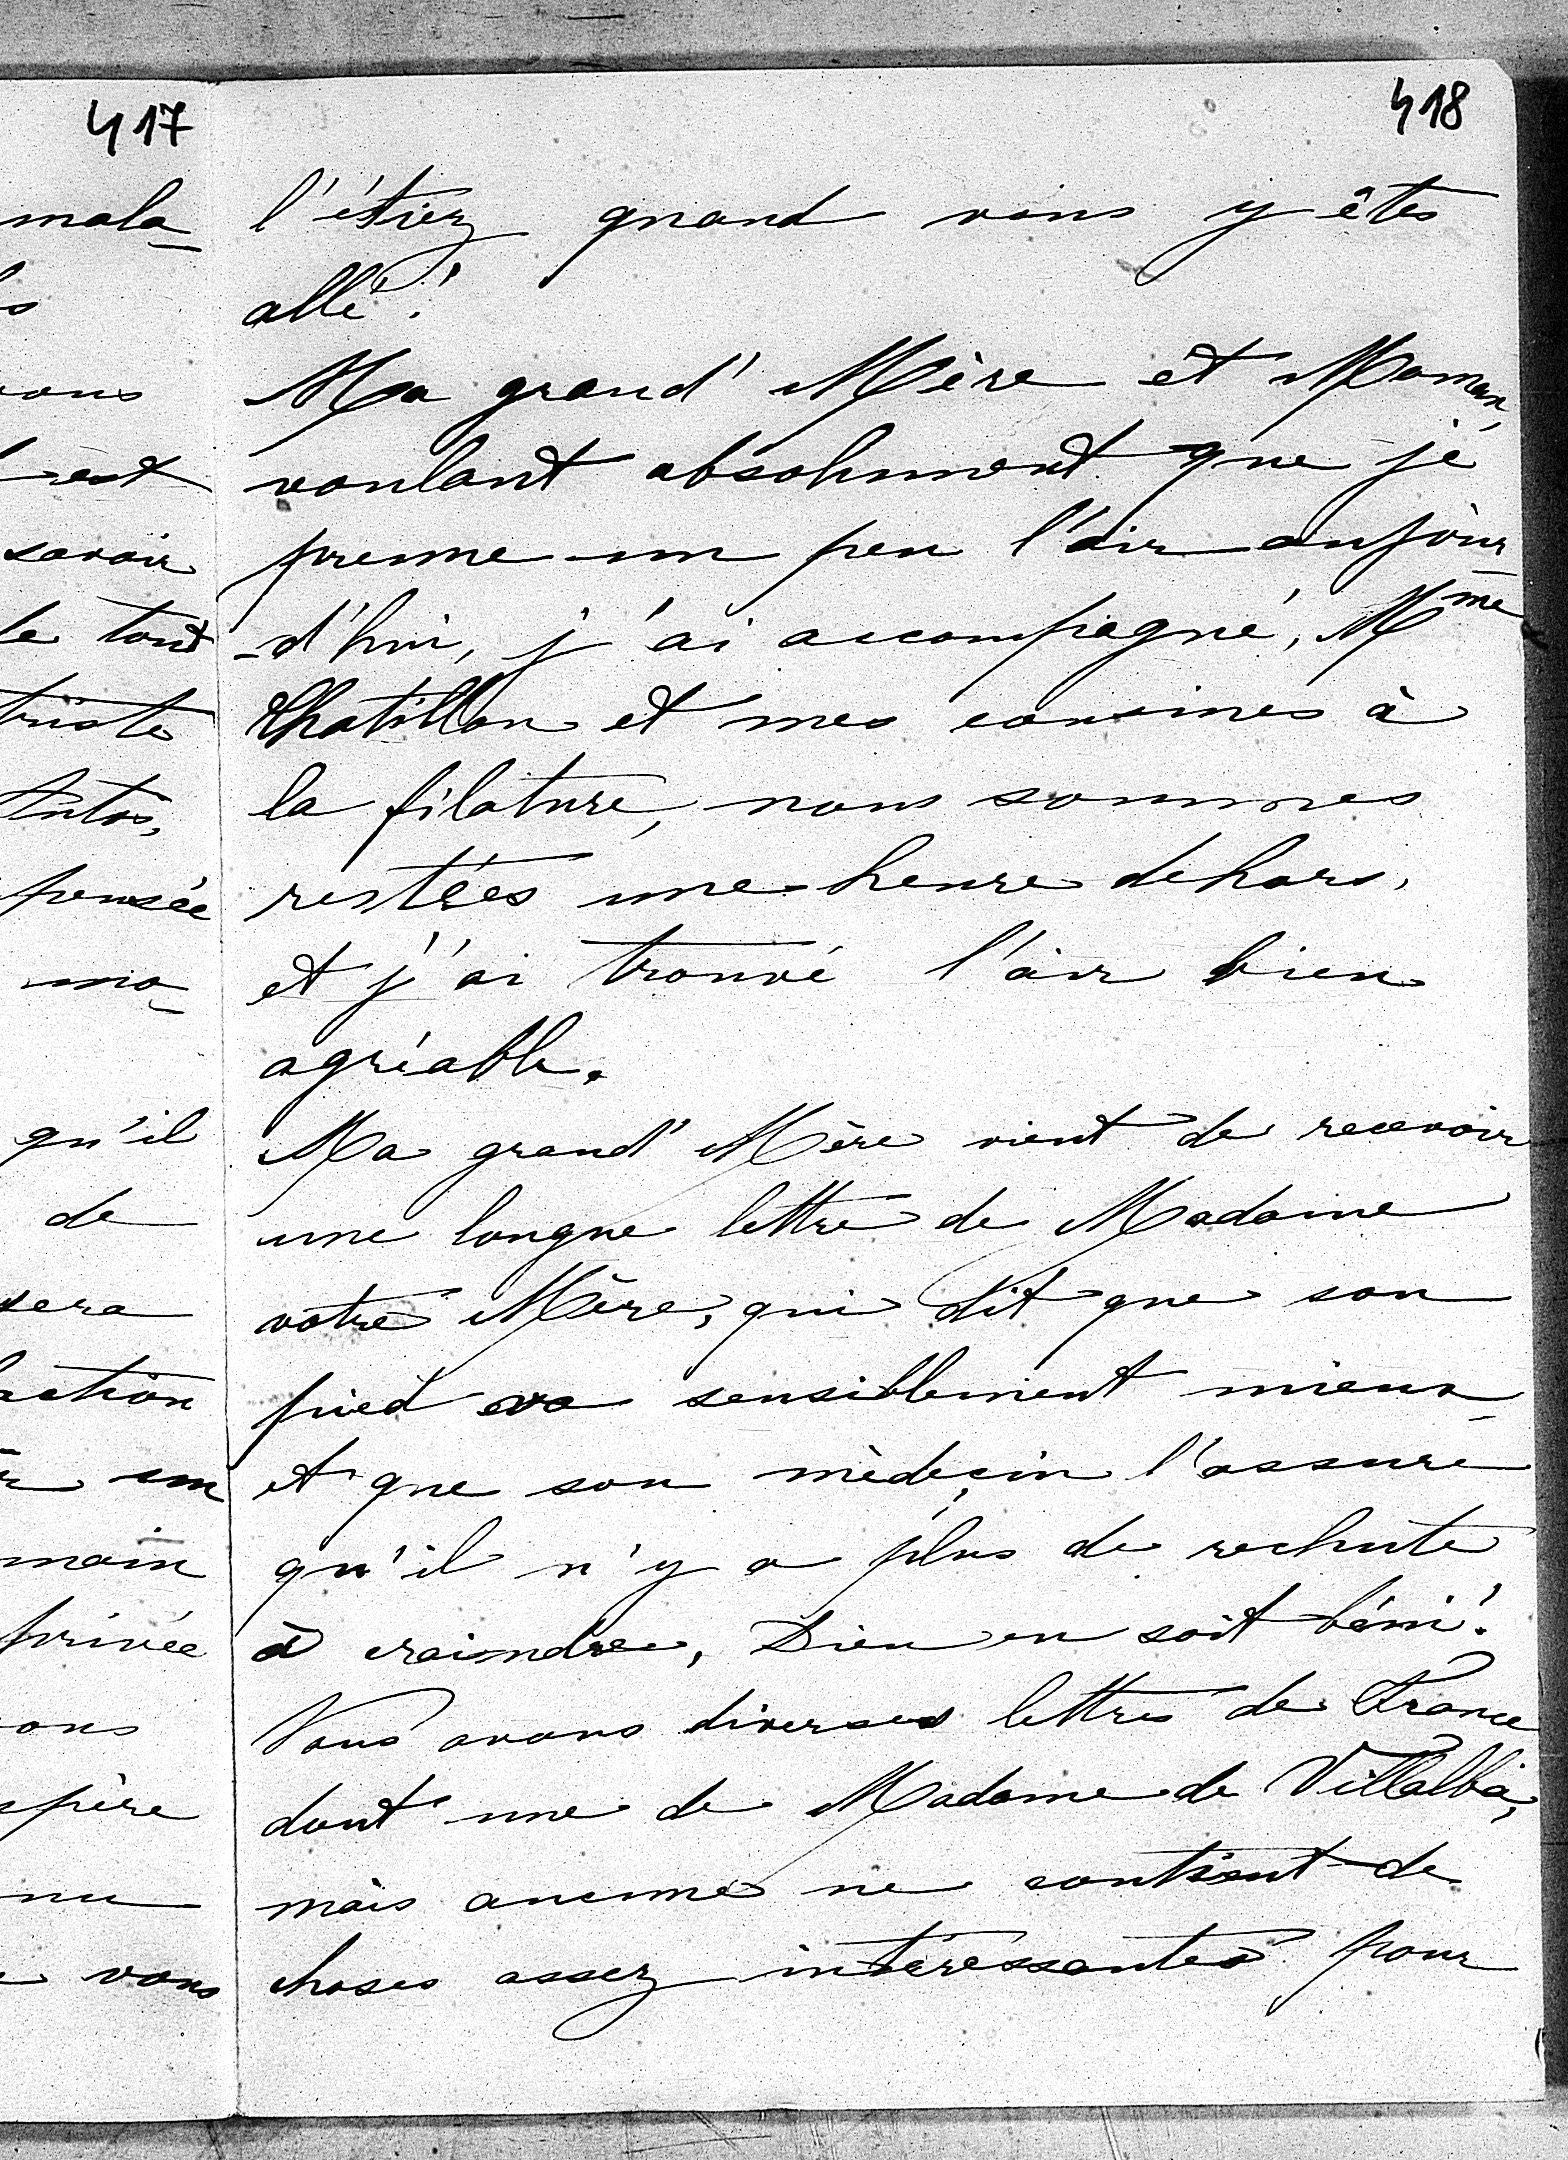 417
mala-
vous
est
savoir
le tout
triste
pensée
ma-
qu'il
de
sera
action
un
main
privée
ons
père
nu
vous
418
l'étiez quand vous y êtes
allé!
Ma grand'Mère et Maman,
voulant absolument que je
prenne un peu l'air aujour
-d'hui, j'ai accompagné, Mme
Chatillon et mes cousines à
la filature, nous sommes
restées une heure dehors,
et j'ai trouvé l'air bien
agréable.
Ma grand'Mère vient de recevoir
une longue lettre de Madame
votre Mère, qui dit que son
pied va sensiblement mieux
et que son médecin l'assure
qu'il n'y a plus de rechute
à craindre, Dieu en soit béni!
Nous avons diverses lettres de France
dont une de Madame de Villalba,
mais aucune ne contient de
choses assez intéressantes pour